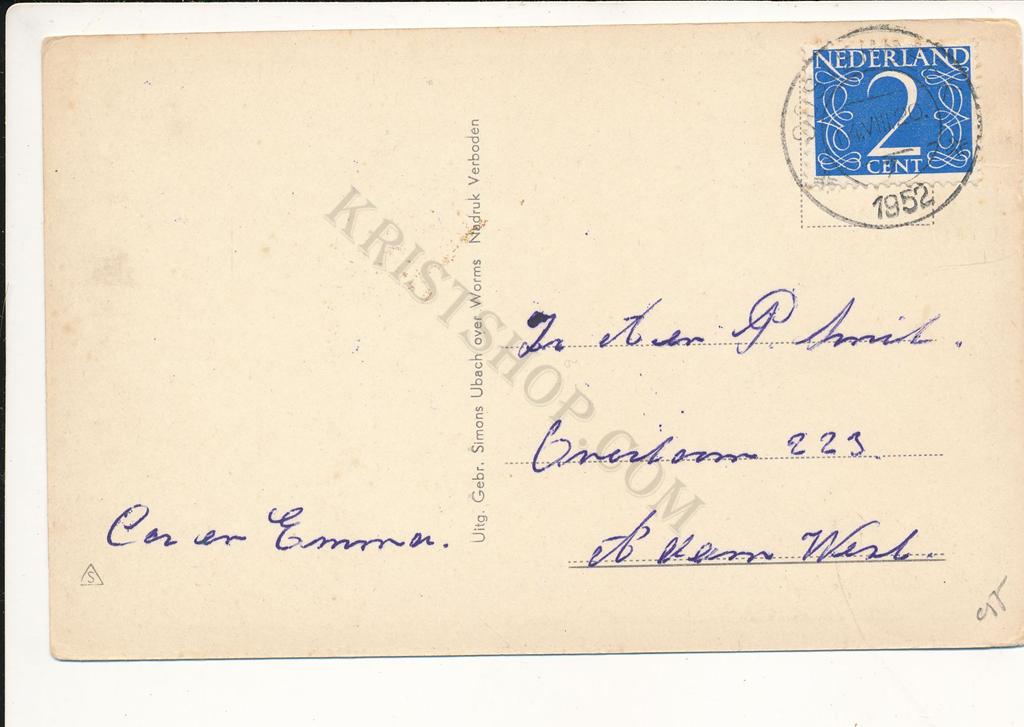 NEDERLAND
2
CENT
1952
Uitg. Gebr. Simons Ubach over Worms Nadruk Verboden
KRISTSHOP.COM
P. Smit.
Overtoom 223.
A'dam West.
Cor en Emma.
S